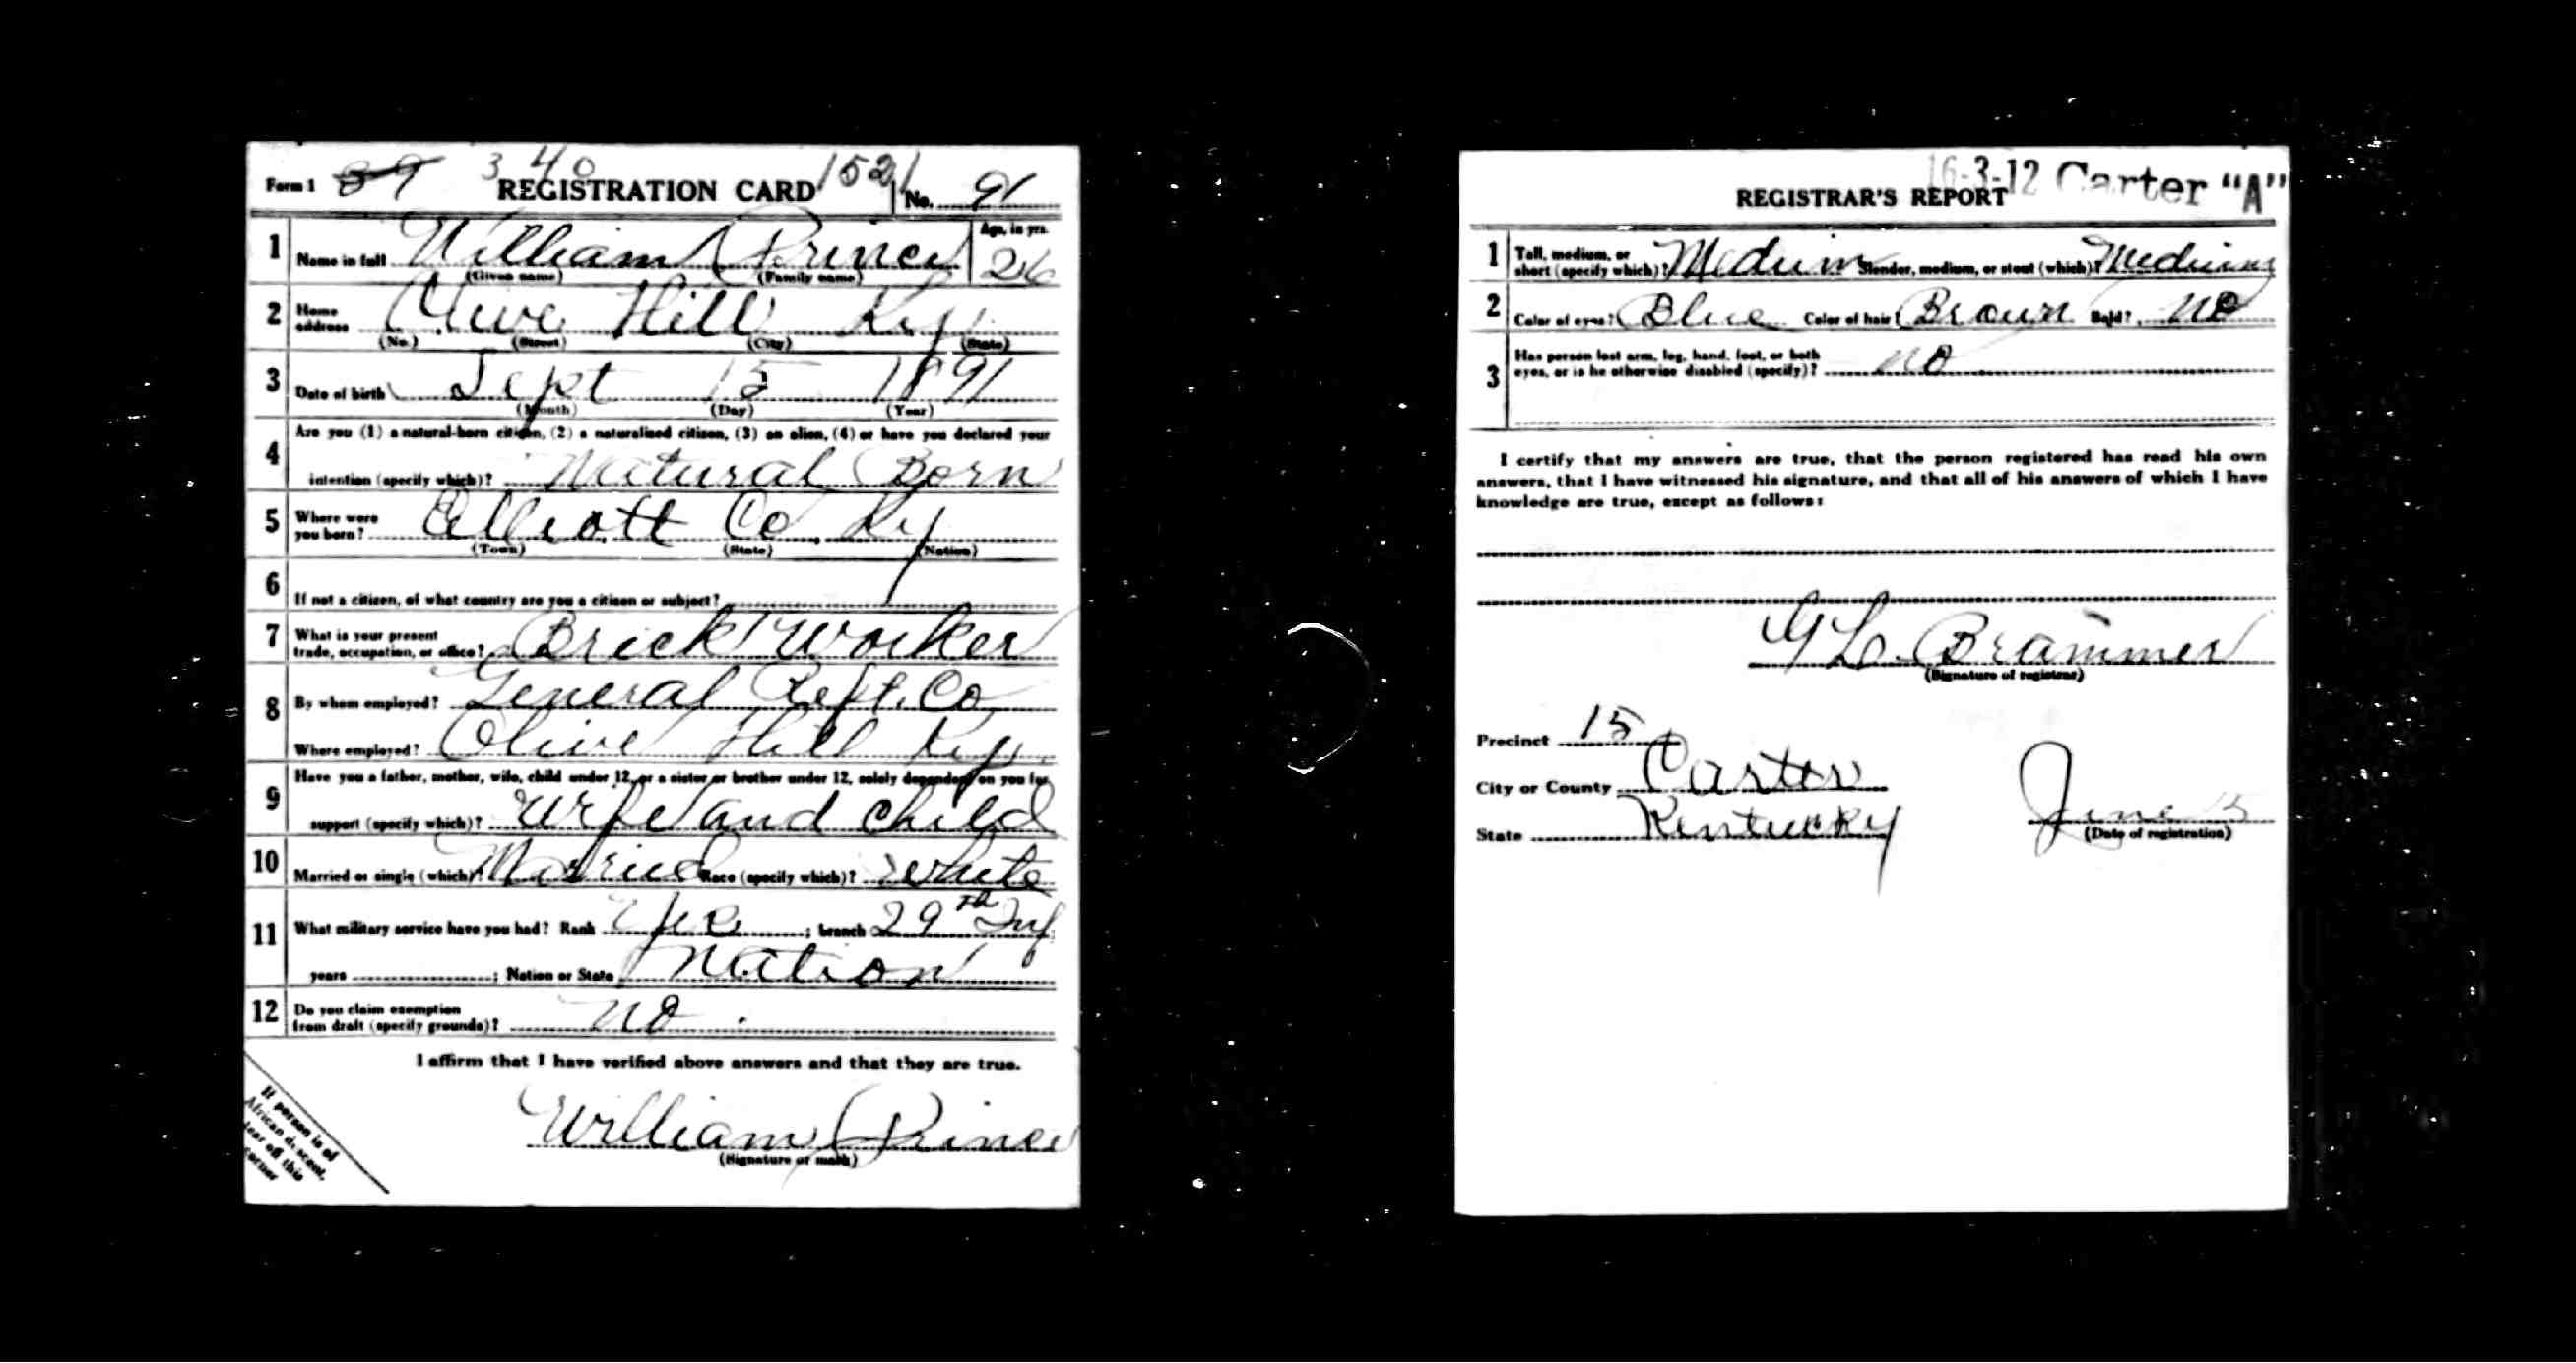 Form 1 39 340 REGISTRATION CARD 1521 No. 91
1 Name in full William Prince Age, in yrs. 26
(Given name) (Family name)
2 Home address Olive Hill Ky
(No.) (Street) (City) (State)
3 Date of birth Sept 15 1891
(Month) (Day) (Year)
4 Are you (1) a natural-born citizen, (2) a naturalized citizen, (3) an alien, (4) or have you declared your
intention (specify which)? Natural Born
5 Where were you born? Elliott Co Ky
(Town) (State) (Nation)
6 If not a citizen, of what country are you a citizen or subject?
7 What is your present trade, occupation, or office? Brick Worker
8 By whom employed? General Reft. Co
Where employed? Olive Hill Ky
9 Have you a father, mother, wife, child under 12, or a sister or brother under 12, solely dependent on you for
support (specify which)? Wife and child
10 Married or single (which)? Married Race (specify which)? White
11 What military service have you had? Rank ; branch 29th Inf
years ; Nation or State Nation
12 Do you claim exemption from draft (specify grounds)? No.
I affirm that I have verified above answers and that they are true.
William Prince
(Signature or mark)
If person is of
African descent,
tear off this
corner
16-3-12 Carter "A"
REGISTRAR'S REPORT
1 Tall, medium, or short (specify which)? Medium Slender, medium, or stout (which)? Medium
2 Color of eyes? Blue Color of hair? Brown Bald? No
3 Has person lost arm, leg, hand, foot, or both
eyes, or is he otherwise disabled (specify)? No
I certify that my answers are true, that the person registered has read his own
answers, that I have witnessed his signature, and that all of his answers of which I have
knowledge are true, except as follows:
G L. Brammer
(Signature of registrar)
Precinct 15
City or County Carter
State Kentucky
June 5
(Date of registration)